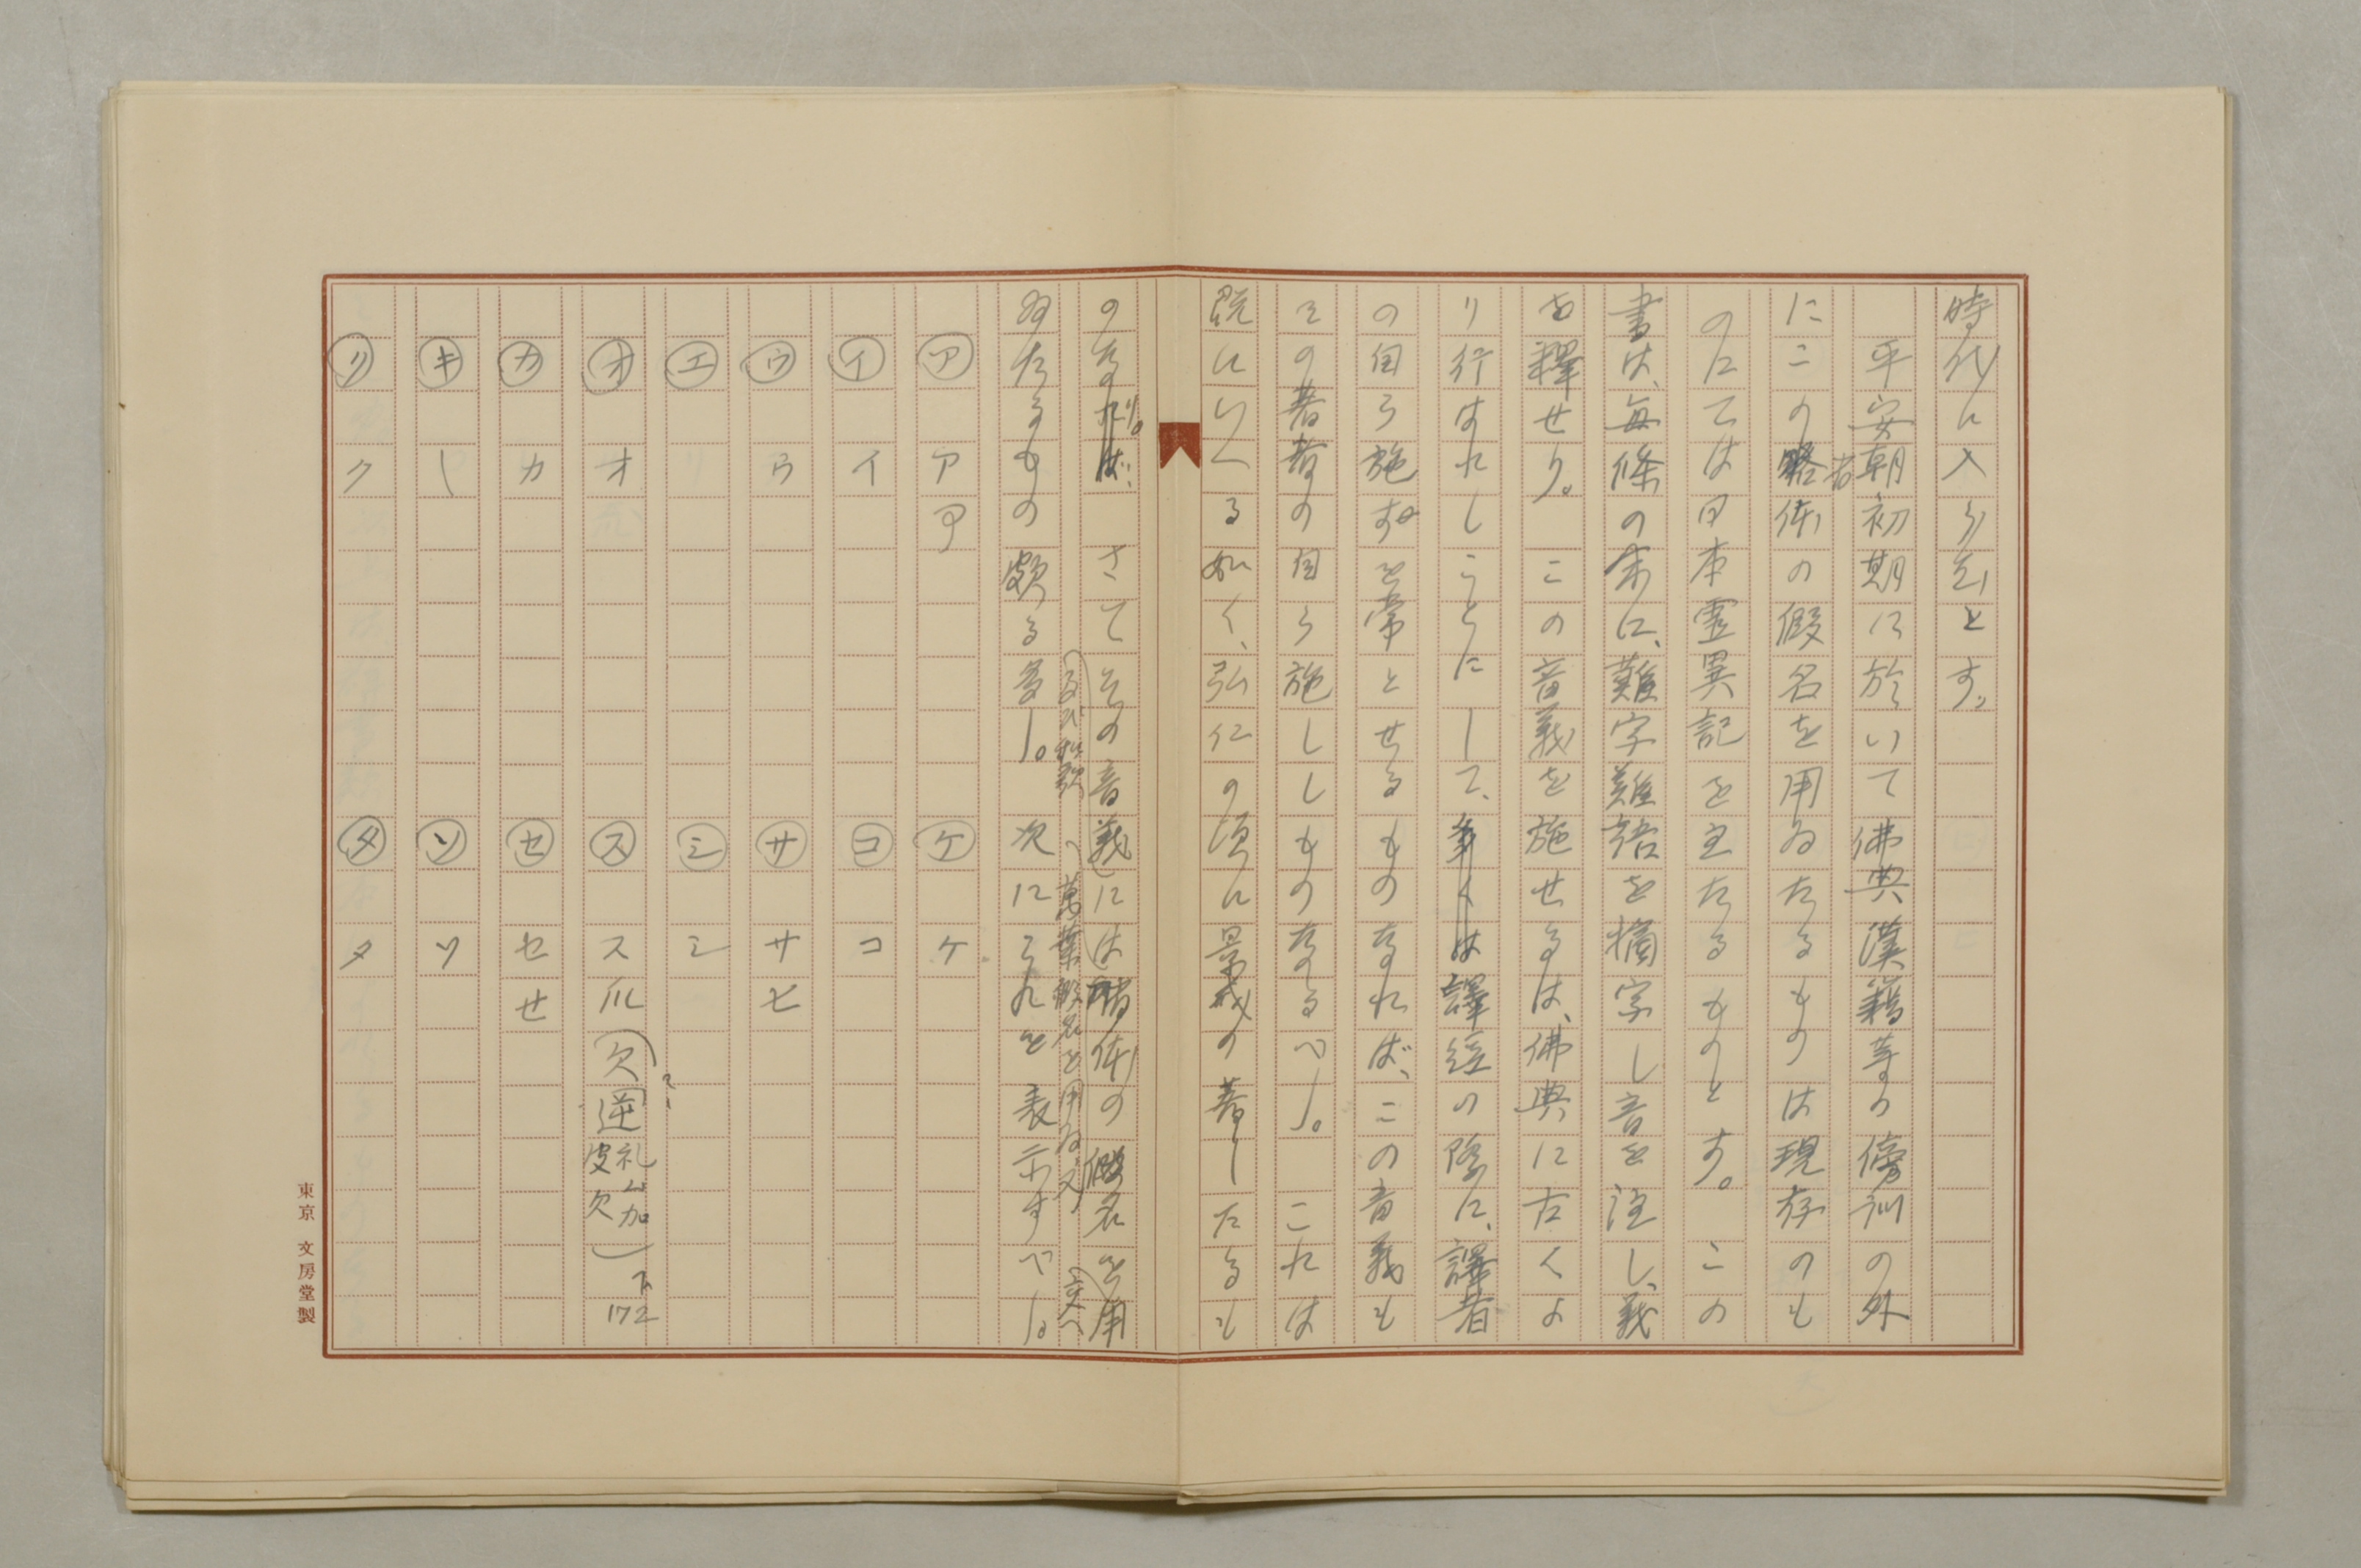 時代に入らむとす。
平安朝初期に於いて佛典漢籍等の傍訓の外
にこの略体の假名を用ゐたるものは現存のも
のにては日本霊異記を主たるものとす。この
書は、毎條の末に、難字難語を摘字し音を注し、義
を釋せり。この音義を施せるは、佛典に古くよ
り行はれしことにして、多くは譯経の際に、譯者
の自ら施すを常とせるものなれば、この音義も
その著者の自ら施ししものなるべし。これは
既にいへる如く、弘仁の頃に景戒の著したるも
のなり。さてその音義には略体の假名を用
及び和歌
萬葉假名を用ゐ、又
交へ
ゐたるもの頗る多し。次にこれを表示すべし。
ア ア ケ ケ
イ イ コ コ
ウ ウ サ サ 七
エ シ シ
オ オ ス ス 爪 (欠 逆 礼ム加 皮欠) 下172
カ カ セ セ せ
キ ソ ソ
ク タ タ
東京 文房堂製